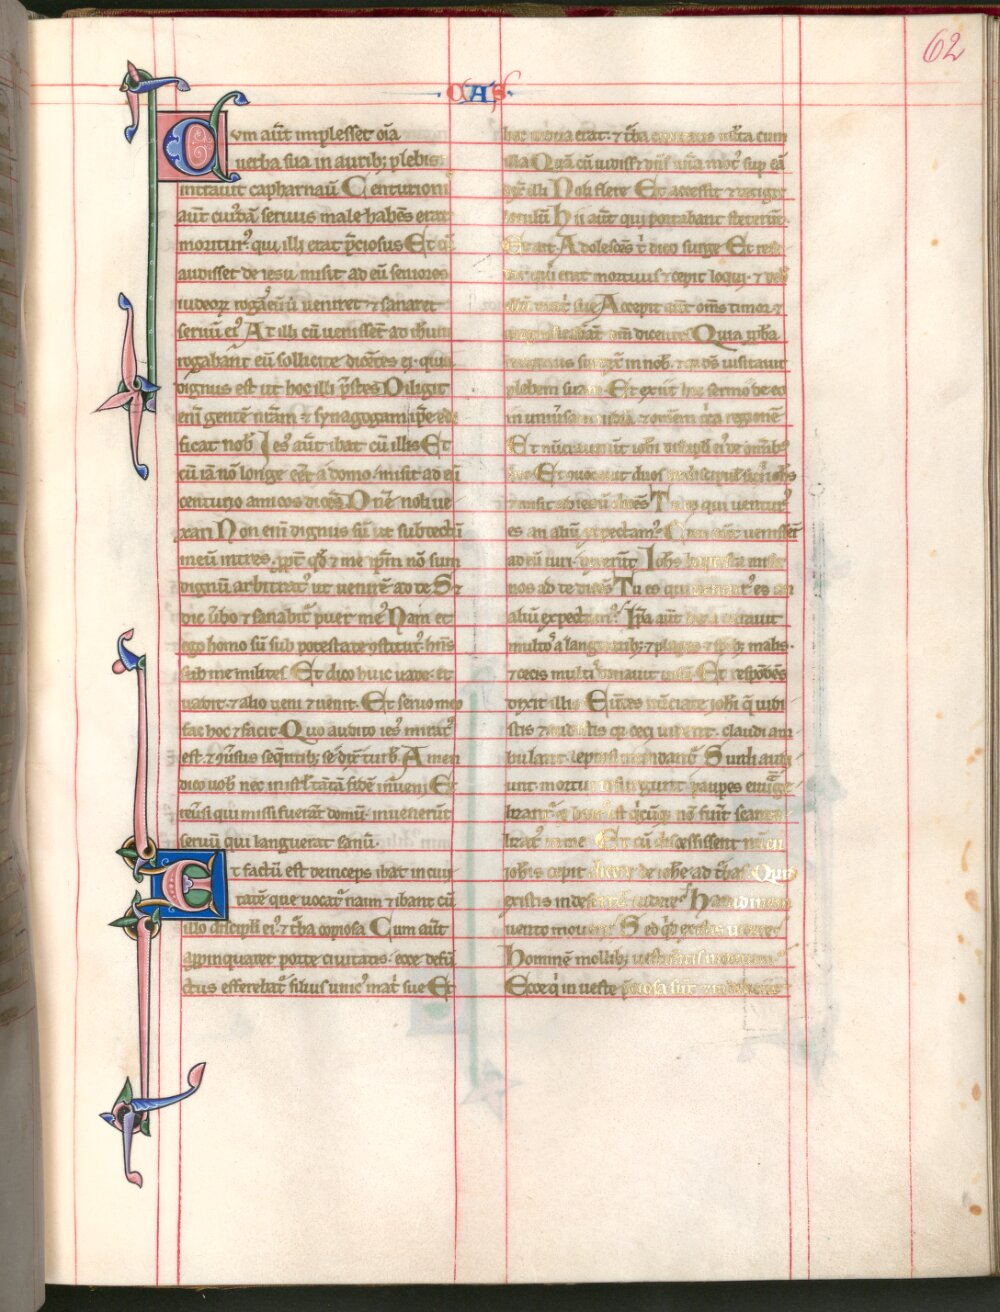 62
CAS
Cvm aūt implesset oīa
uerba sua in aurib; plebis
intrauit capharnaū Centurioni
aūt cuiꝰdā seruus male habēs erat
moriturꝰ qui illi erat p̄ciosus Et cū
audisset de iesu misit ad eū seniores
iudeoꝝ rogās eū ut ueniret ⁊ sanaret
seruū eiꝰ At illi cū uenissēt ad ihm
rogabant eū sollicite dicētes ei· quia
dignus est ut hoc illi p̄stes Diligit
eni gentē nr̄am ⁊ synagogam ip̄e edi
ficat nob̄ Iesꝰ aūt ibat cū illis Et
cū iā nō longe eēt a domo· misit ad eū
centurio amicos dicēs Dn̄e noli ue
xari Non eni dignus sū ut sub tectū
meū intres· ppt̄ qd̄ ⁊ me ip̄m nō sum
dignū arbitratꝰ ut uenirē ad te S;
dic ūbo ⁊ sanabit̄ puer meꝰ Nam et
ego homo sū sub potestate ꝯstitutꝰ· hn̄s
sub me milites Et dico huic uade· et
uadit· ⁊ alio ueni ⁊ uenit· Et seruo meo
fac hoc ⁊ facit Quo audito ies̄ miratꝰ
est· ⁊ ꝯuersus seq̄ntib; se dix̄ turb̄ Amen
dico uob̄ nec in isrl̄ tātā fidē inueni Et
reūsi qui missi fuerāt domū· inuenerūt
seruū qui languerat sanū·
Et factū est deinceps ibat in ciui
tatē que uocat̄ naim ⁊ ibant cū
illo discipli eiꝰ ⁊ t̄ba copiosa Cum aūt
appinquaret porte ciuitatis· ecce defū
ctus efferebat̄ filius unicꝰ mat̄ sue Et
hec uidua erat· ⁊ t̄ba ciuitatis ml̄ta cum
illa Quā cū uidiss; dn̄s mīa motꝰ sup eā
dix̄ illi Noli flere Et accessit ⁊ tetigit
loculū Hii aūt qui portabant steterūt·
Et ait· Adolescēs t̄ dico surge Et rese
dit qui erat mortuus ⁊ cepit loqui· ⁊ ded̄
illū mat̄ sue Accepit aūt om̄s timor ⁊
dm̄ dicentes Quia ꝓpha
in nob̄· ⁊ q̄ ds̄ uisitauit
plebem suā Et exiit hic sermo de eo
in uniūsa iudea· ⁊ omem c̄ca regionē
Et nūciauerūt iohī discipli eiꝰ de omīb;
duos
⁊ misit ad iesū dicēs Tu es qui uenturꝰ
es an aliū expectamꝰ Cum aūt uenissēt
ad eū uiri· dixerūt Iohs baptista misit
nos ad te dicēs Tu es qui uenturꝰ es an
aliū expectamꝰ Ip̄a aūt hora curauit
multos a languorib; ⁊ plagis ⁊ sp̄ib; malis·
⁊ cecis multis donauit uisū Et respōdēs
dixit illis Eūtes nūciate iohī q̄ uidi
stis ⁊ audistis q̄ ceci uident· claudi am
bulant· leprosi mundant̄ Surdi audi
unt· mortui resurgunt· paupes euāge
lizant̄ ⁊ beatꝰ est q̄cūq; nō fuit̄ scanda
lizatꝰ in me Et cū discessissent nūcii
iohīs cepit dicere de iohe ad t̄bas Quid
existis in desertū uidere Harūdinem
uento moueri Sed q̄d existis uidere
Hominē mollib; uestimentis indutum
Ecce q̄ in ueste p̄ciosa sūt ⁊ in deliciis